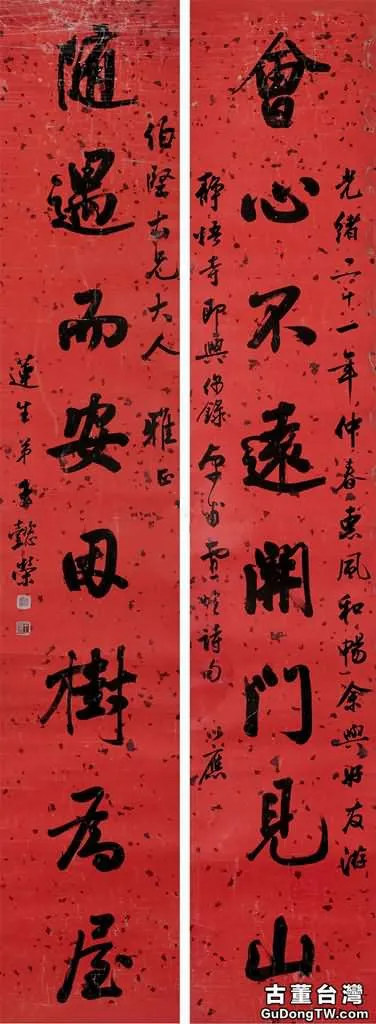 光緒二十一年仲春惠風和暢余與好友游
會心不遠開門見山
靜悟寺即興偶錄詩句以應
伯堅兄大人雅正
隨遇而安因樹為屋
蓮生弟王懿榮
古董台灣
GuDongTW.com